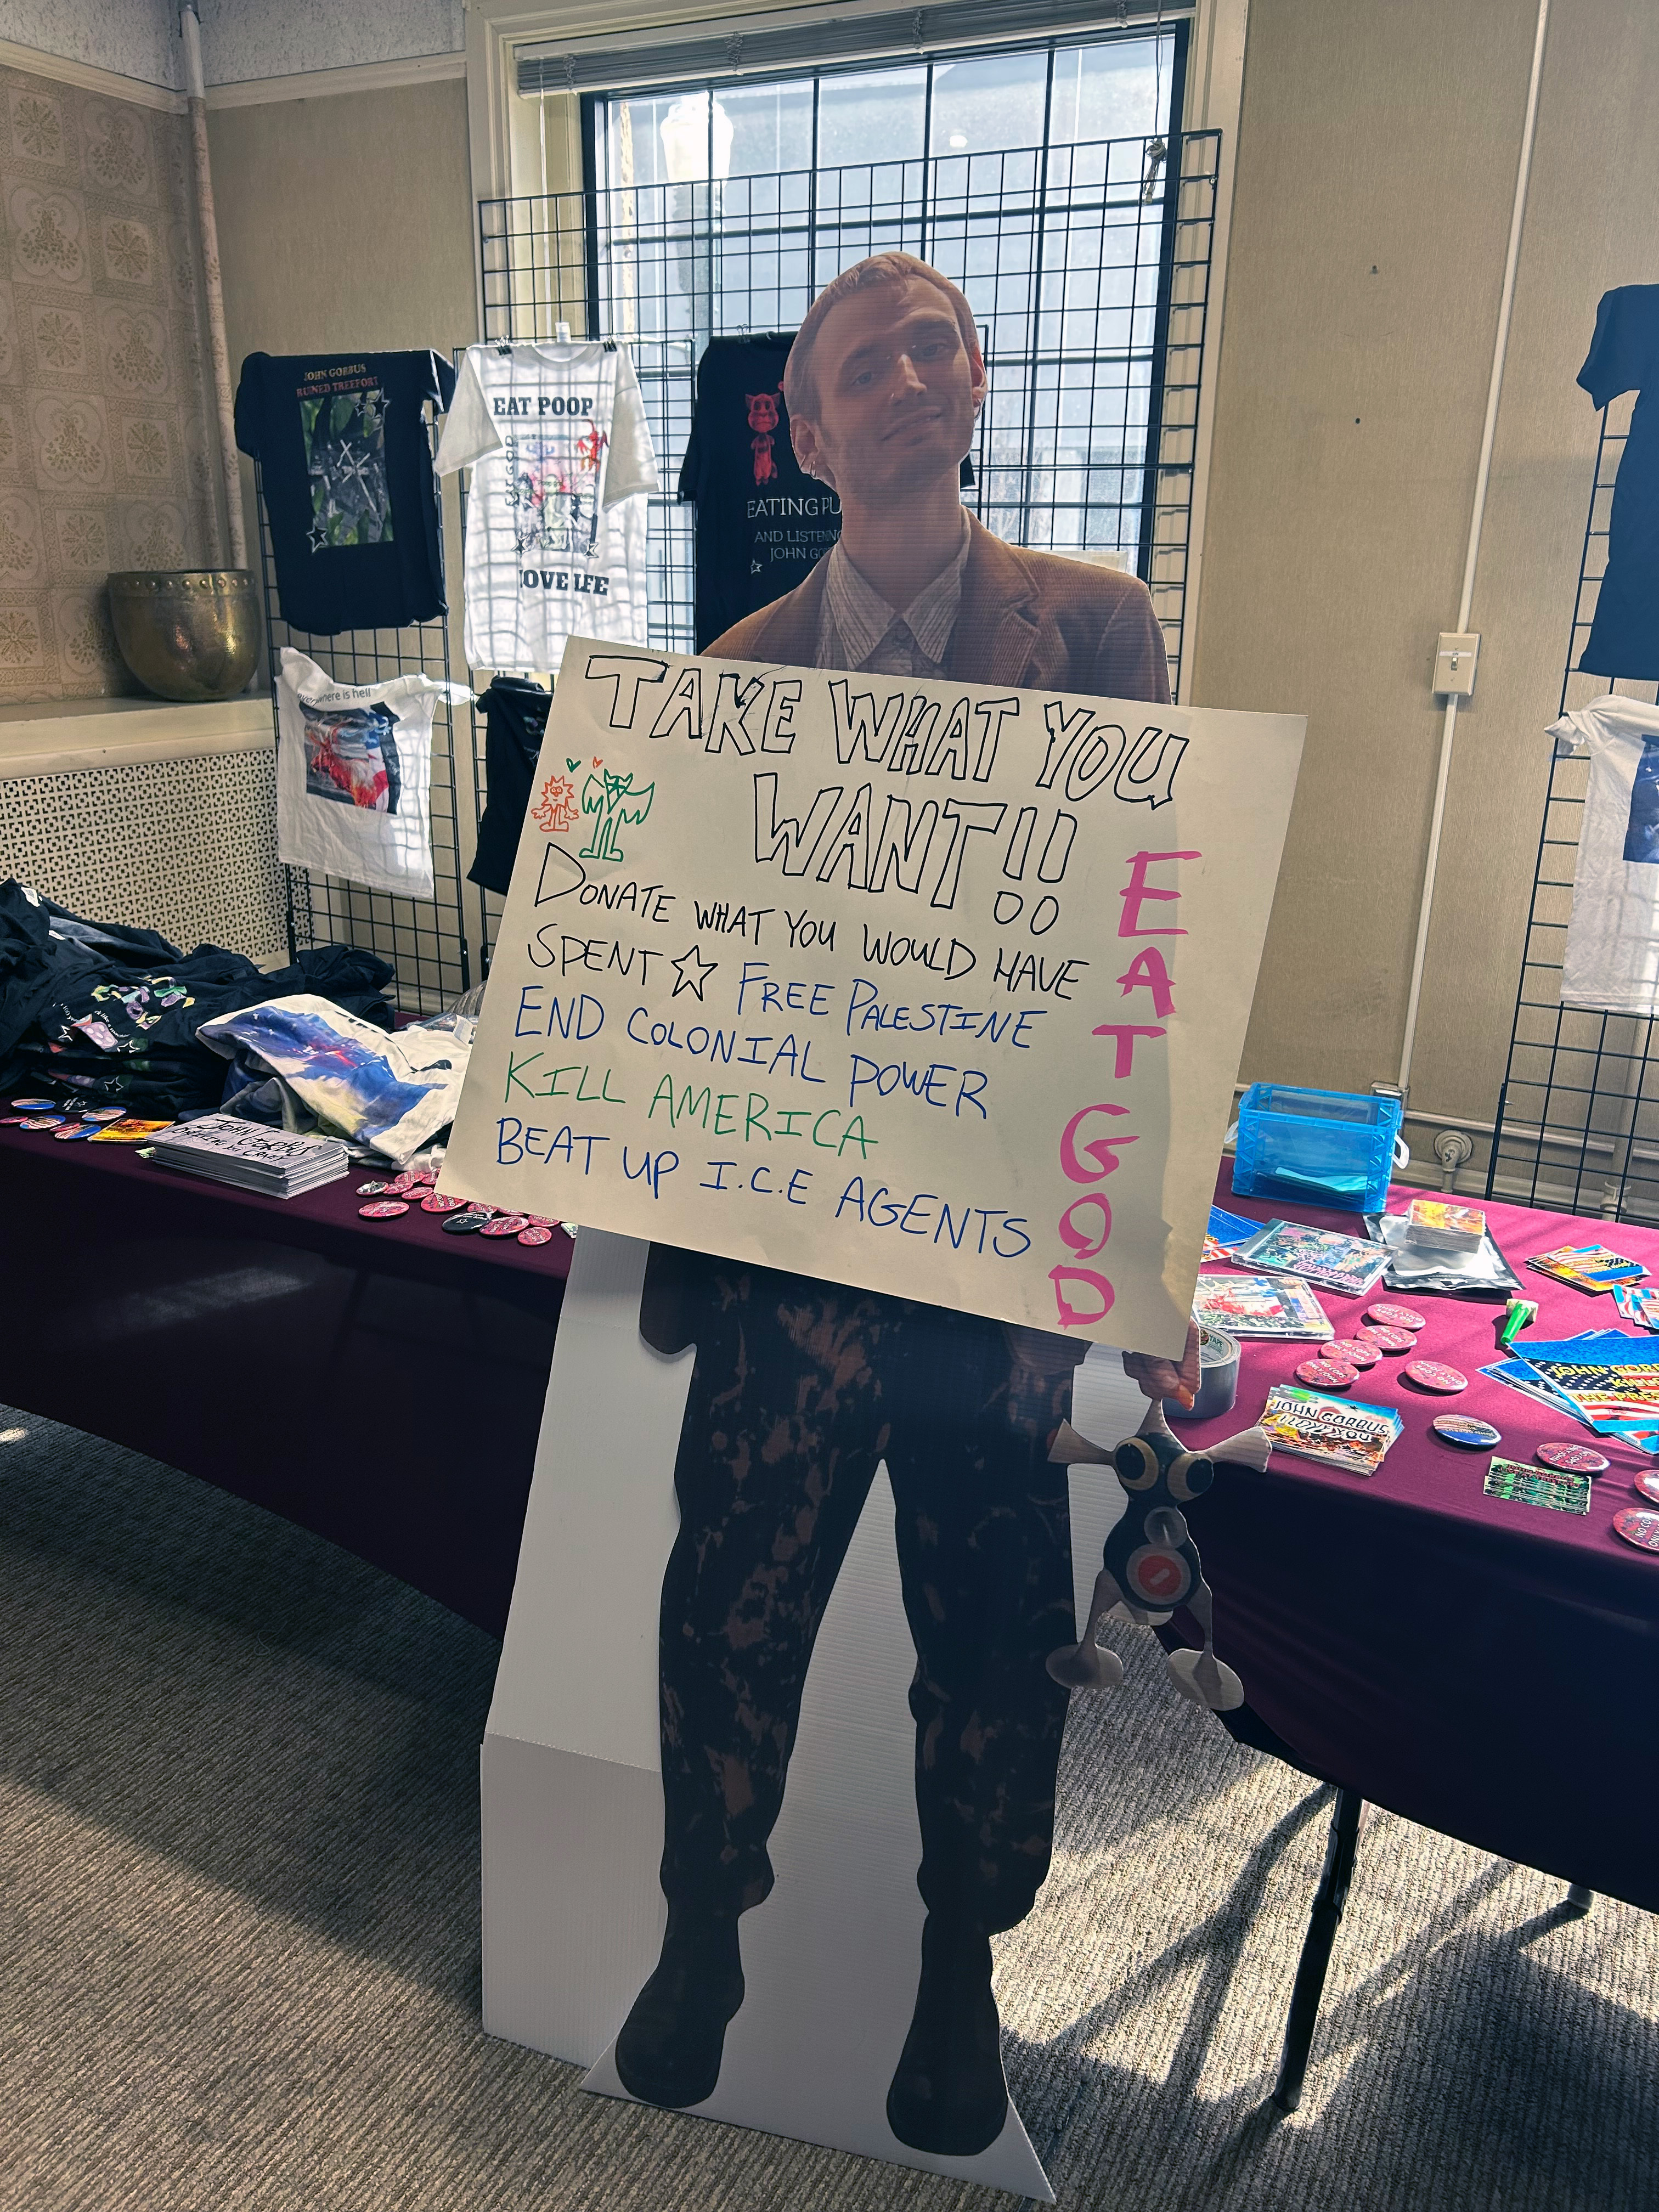 JOHN GORBUS
RUINED TREEFORT
EAT POOP
LOVE LIFE
EATING
AND
JOHN
everywhere is hell
TAKE WHAT YOU
WANT!!
DONATE WHAT YOU WOULD HAVE
SPENT ☆ FREE PALESTINE
END COLONIAL POWER
KILL AMERICA
BEAT UP I.C.E AGENTS
EAT GOD
JOHN GORBUS
JOHN GORBUS
I LOVE YOU
TAPE